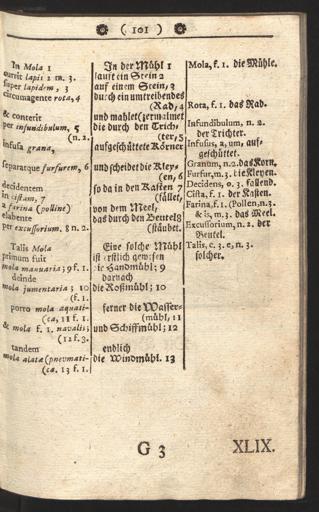 ( 101 )
In Mola 1
currit lapis 2 m. 3.
super lapidem, 3
circumagente rota, 4
& conterit
per infundibulum, 5
(n. 2.
infusa grana,
separatque furfurem, 6
decidentem
in cistam, 7
a farina (polline)
elabente
per excussorium. 8 n. 2.
Talis Mola
primum fuit
mola manuaria; 9 f. 1.
deinde
mola jumentaria; 10
(f. 1.
porro mola aquati-
(ca, 11 f. 1.
& mola f. 1. navalis;
(12 f. 3.
tandem
mola alata (pnevmati-
(ca. 13 f. 1.
In der Mühl 1
lauft ein Stein 2
auf einem Stein, 3
durch ein umtreibendes
(Rad, 4
und mahlet zermalmet
die durch den Trich-
(ter, 5
aufgeschüttete Körner
und scheidet die Kley-
(en, 6
so da in den Kasten 7
(fället,
von dem Meel,
das durch den Beutel 8
(stäubet.
Eine solche Mühl
ist erstlich gewesen
die Handmühl; 9
darnach
die Roßmühl; 10
ferner die Wasser-
(mühl, 11
und Schiffmühl; 12
endlich
die Windmühl. 13
Mola, f. 1. die Mühle.
Rota, f. 1. das Rad.
Infundibulum, n. 2.
der Trichter.
Infusus, a, um, auf-
geschüttet.
Granum, n. 2. das Korn.
Furfur, m. 3. die Kleyen.
Decidens, o. 3. fallend.
Cista, f. 1. der Kasten.
Farina, f. 1. (Pollen, n. 3.
& is, m. 3. das Meel.
Excussorium, n. 2. der
Beutel.
Talis, c. 3. e, n. 3.
solcher.
G 3
XLIX.